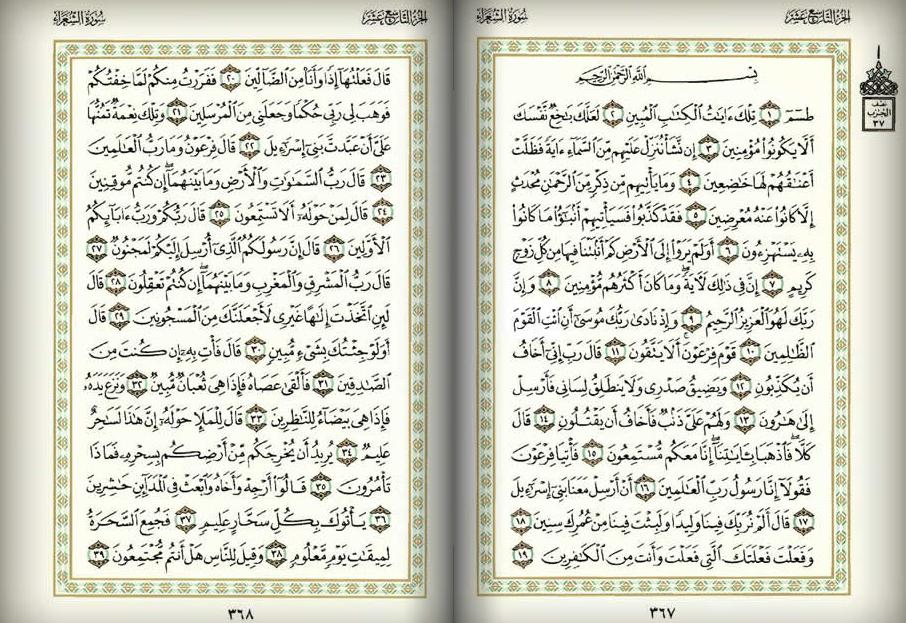 الجزء التاسع عشر
سورة الشعراء
بِسْمِ اللَّهِ الرَّحْمَٰنِ الرَّحِيمِ
طسٓمٓ ١ تِلْكَ ءَايَٰتُ الْكِتَٰبِ الْمُبِينِ ٢ لَعَلَّكَ بَٰخِعٌ نَّفْسَكَ
أَلَّا يَكُونُوا مُؤْمِنِينَ ٣ إِن نَّشَأْ نُنَزِّلْ عَلَيْهِم مِّنَ السَّمَآءِ ءَايَةً فَظَلَّتْ
أَعْنَٰقُهُمْ لَهَا خَٰضِعِينَ ٤ وَمَا يَأْتِيهِم مِّن ذِكْرٍ مِّنَ الرَّحْمَٰنِ مُحْدَثٍ
إِلَّا كَانُوا عَنْهُ مُعْرِضِينَ ٥ فَقَدْ كَذَّبُوا فَسَيَأْتِيهِمْ أَنۢبَٰٓؤُا مَا كَانُوا
بِهِۦ يَسْتَهْزِءُونَ ٦ أَوَلَمْ يَرَوْا إِلَى الْأَرْضِ كَمْ أَنۢبَتْنَا فِيهَا مِن كُلِّ زَوْجٍ
كَرِيمٍ ٧ إِنَّ فِي ذَٰلِكَ لَءَايَةً وَمَا كَانَ أَكْثَرُهُم مُّؤْمِنِينَ ٨ وَإِنَّ
رَبَّكَ لَهُوَ الْعَزِيزُ الرَّحِيمُ ٩ وَإِذْ نَادَىٰ رَبُّكَ مُوسَىٰٓ أَنِ ائْتِ الْقَوْمَ
الظَّٰلِمِينَ ١٠ قَوْمَ فِرْعَوْنَ أَلَا يَتَّقُونَ ١١ قَالَ رَبِّ إِنِّيٓ أَخَافُ
أَن يُكَذِّبُونِ ١٢ وَيَضِيقُ صَدْرِي وَلَا يَنطَلِقُ لِسَانِي فَأَرْسِلْ
إِلَىٰ هَٰرُونَ ١٣ وَلَهُمْ عَلَيَّ ذَنۢبٌ فَأَخَافُ أَن يَقْتُلُونِ ١٤ قَالَ
كَلَّا فَاذْهَبَا بِـَٔايَٰتِنَآ إِنَّا مَعَكُم مُّسْتَمِعُونَ ١٥ فَأْتِيَا فِرْعَوْنَ
فَقُولَآ إِنَّا رَسُولُ رَبِّ الْعَٰلَمِينَ ١٦ أَنْ أَرْسِلْ مَعَنَا بَنِيٓ إِسْرَٰٓءِيلَ
١٧ قَالَ أَلَمْ نُرَبِّكَ فِينَا وَلِيدًا وَلَبِثْتَ فِينَا مِنْ عُمُرِكَ سِنِينَ ١٨
وَفَعَلْتَ فَعْلَتَكَ الَّتِي فَعَلْتَ وَأَنتَ مِنَ الْكَٰفِرِينَ ١٩
٣٦٧
نصف
الحزب
٣٧
الجزء التاسع عشر
سورة الشعراء
قَالَ فَعَلْتُهَآ إِذًا وَأَنَا۠ مِنَ الضَّآلِّينَ ٢٠ فَفَرَرْتُ مِنكُمْ لَمَّا خِفْتُكُمْ
فَوَهَبَ لِي رَبِّي حُكْمًا وَجَعَلَنِي مِنَ الْمُرْسَلِينَ ٢١ وَتِلْكَ نِعْمَةٌ تَمُنُّهَا
عَلَيَّ أَنْ عَبَّدتَّ بَنِيٓ إِسْرَٰٓءِيلَ ٢٢ قَالَ فِرْعَوْنُ وَمَا رَبُّ الْعَٰلَمِينَ
٢٣ قَالَ رَبُّ السَّمَٰوَٰتِ وَالْأَرْضِ وَمَا بَيْنَهُمَآ إِن كُنتُم مُّوقِنِينَ
٢٤ قَالَ لِمَنْ حَوْلَهُۥٓ أَلَا تَسْتَمِعُونَ ٢٥ قَالَ رَبُّكُمْ وَرَبُّ ءَابَآئِكُمُ
الْأَوَّلِينَ ٢٦ قَالَ إِنَّ رَسُولَكُمُ الَّذِيٓ أُرْسِلَ إِلَيْكُمْ لَمَجْنُونٌ ٢٧
قَالَ رَبُّ الْمَشْرِقِ وَالْمَغْرِبِ وَمَا بَيْنَهُمَآ إِن كُنتُمْ تَعْقِلُونَ ٢٨ قَالَ
لَئِنِ اتَّخَذْتَ إِلَٰهًا غَيْرِي لَأَجْعَلَنَّكَ مِنَ الْمَسْجُونِينَ ٢٩ قَالَ
أَوَلَوْ جِئْتُكَ بِشَيْءٍ مُّبِينٍ ٣٠ قَالَ فَأْتِ بِهِۦٓ إِن كُنتَ مِنَ
الصَّٰدِقِينَ ٣١ فَأَلْقَىٰ عَصَاهُ فَإِذَا هِيَ ثُعْبَانٌ مُّبِينٌ ٣٢ وَنَزَعَ يَدَهُۥ
فَإِذَا هِيَ بَيْضَآءُ لِلنَّٰظِرِينَ ٣٣ قَالَ لِلْمَلَإِ حَوْلَهُۥٓ إِنَّ هَٰذَا لَسَٰحِرٌ
عَلِيمٌ ٣٤ يُرِيدُ أَن يُخْرِجَكُم مِّنْ أَرْضِكُم بِسِحْرِهِۦ فَمَاذَا
تَأْمُرُونَ ٣٥ قَالُوٓا أَرْجِهْ وَأَخَاهُ وَابْعَثْ فِي الْمَدَآئِنِ حَٰشِرِينَ
٣٦ يَأْتُوكَ بِكُلِّ سَحَّارٍ عَلِيمٍ ٣٧ فَجُمِعَ السَّحَرَةُ
لِمِيقَٰتِ يَوْمٍ مَّعْلُومٍ ٣٨ وَقِيلَ لِلنَّاسِ هَلْ أَنتُم مُّجْتَمِعُونَ ٣٩
٣٦٨